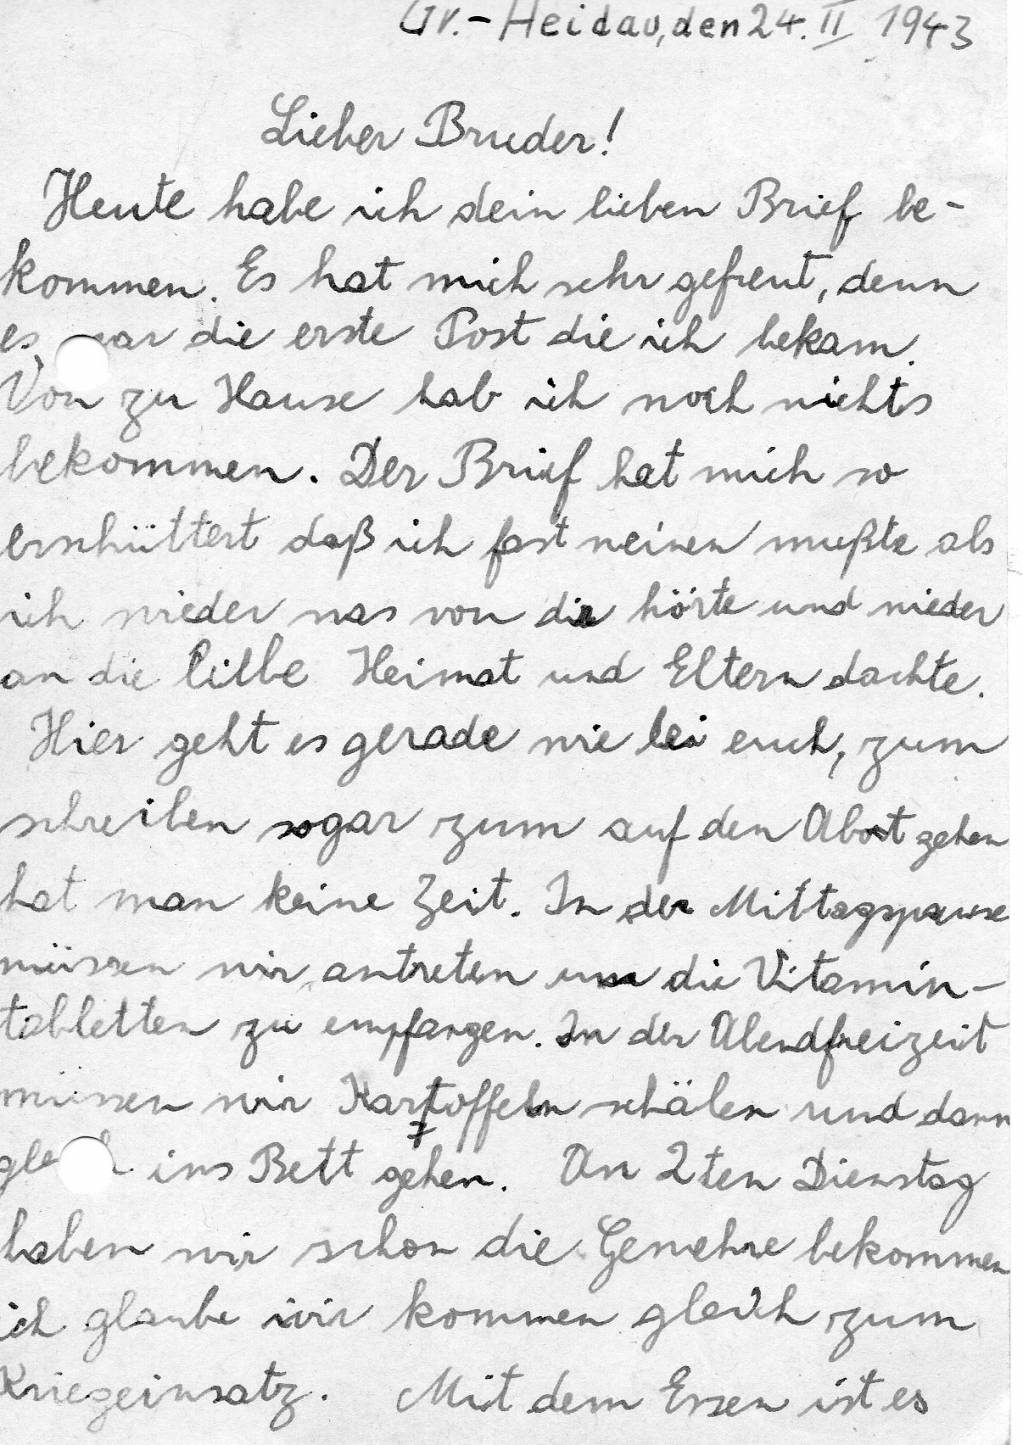 Gr.-Heidau, den 24. II 1943
Lieber Bruder!
Heute habe ich dein lieben Brief be-
kommen. Es hat mich sehr gefreut, denn
es war die erste Post die ich bekam.
Von zu Hause hab ich noch nichts
bekommen. Der Brief hat mich so
erschüttert daß ich fast weinen mußte als
ich wieder was von dir hörte und wieder
an die liebe Heimat und Eltern dachte.
Hier geht es gerade wie bei euch, zum
schreiben sogar zum auf den Abort gehen
hat man keine Zeit. In der Mittagspause
müssen wir antreten um die Vitamin-
tabletten zu empfangen. In der Abendfreizeit
müssen wir Kartoffeln schälen und dann
gleich ins Bett gehen. An 2ten Dienstag
haben wir schon die Gewehre bekommen
ich glaube wir kommen gleich zum
Kriegeinsatz. Mit dem Essen ist es